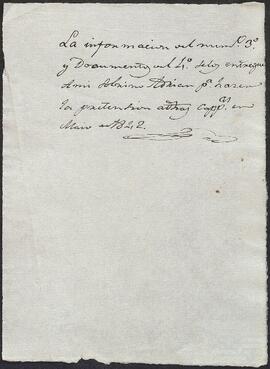 La informacion del num.º 3º
y Documentos del 4º. se los entregue
a mi sobrino Adrian p.ª hacer
la pretension a otras capp.s en
Maio de 1822.